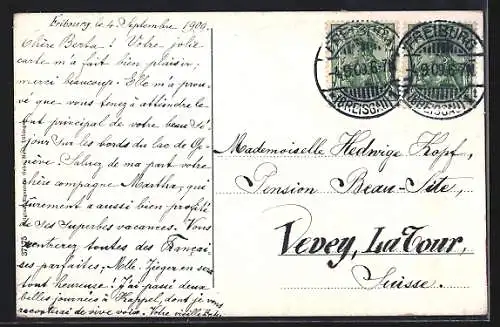 Fribourg le 4. Septembre 1909.
Chère Berta! Votre jolie
carte m'a fait bien plaisir;
merci beaucoup. Elle m'a prou-
vé que vous tenez à attindre le
but principal de votre beau Sé-
jour sur les bords du lac de Ge-
nève. Saluez de ma part votre
chère compagne Martha, qui
sûrement a aussi bien profité
de ses superbes vacances. Vous
rentrerez toutes des Françai-
ses parfaites, Mlle. Zieger en sera
tout heureuse! J'ai passé deux
belles journées à Kappel, dont je vous
raconterai de vive voix. Votre vieille
FREIBURG
4.9.09.6-7N.
(BREISGAU)
FREIBURG
4.9.09.6-7N.
(BREISGAU)
Mademoiselle Hedwige Kopf,
Pension Beau-Site,
Vevey, La Tour,
Suisse.